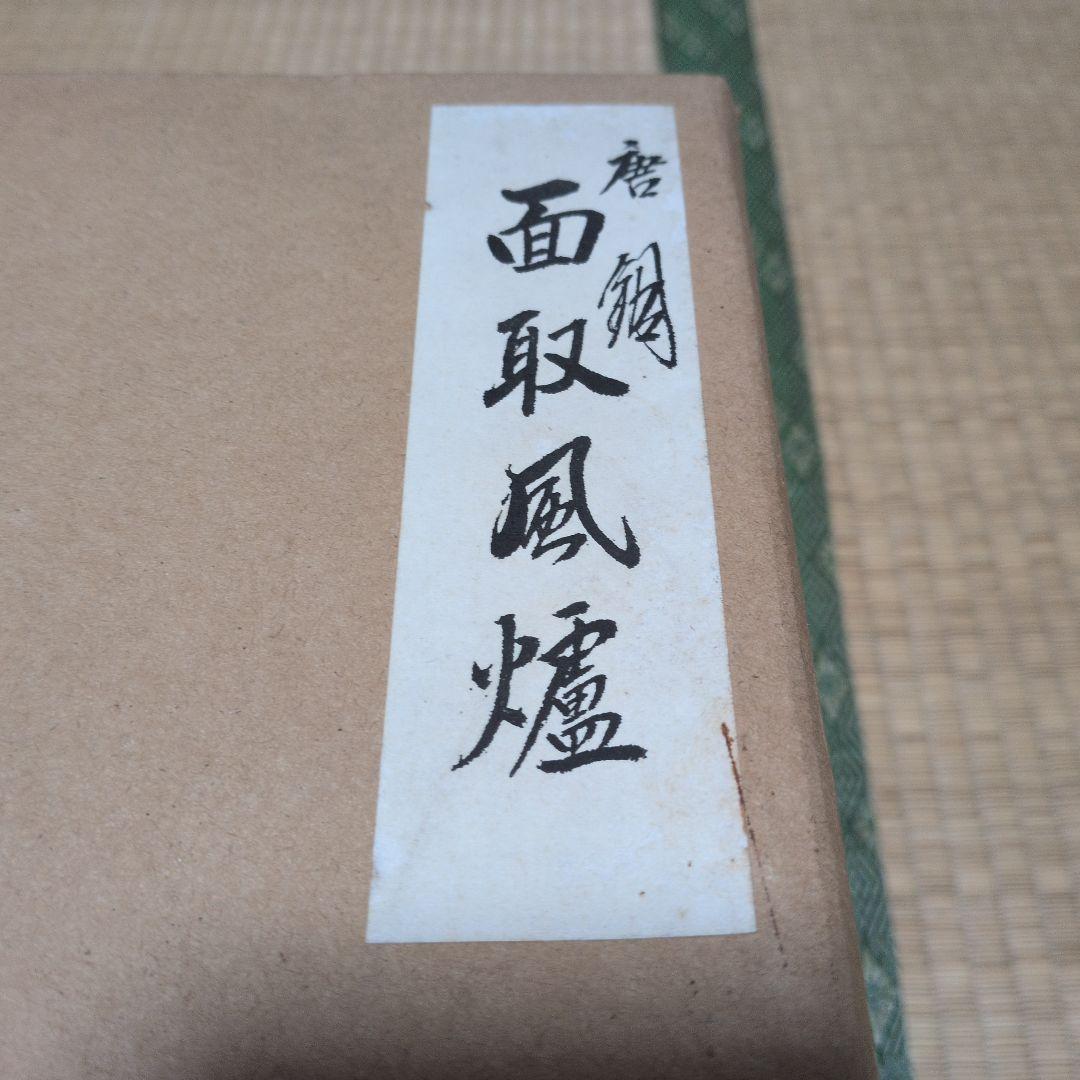 唐銅
面取風爐